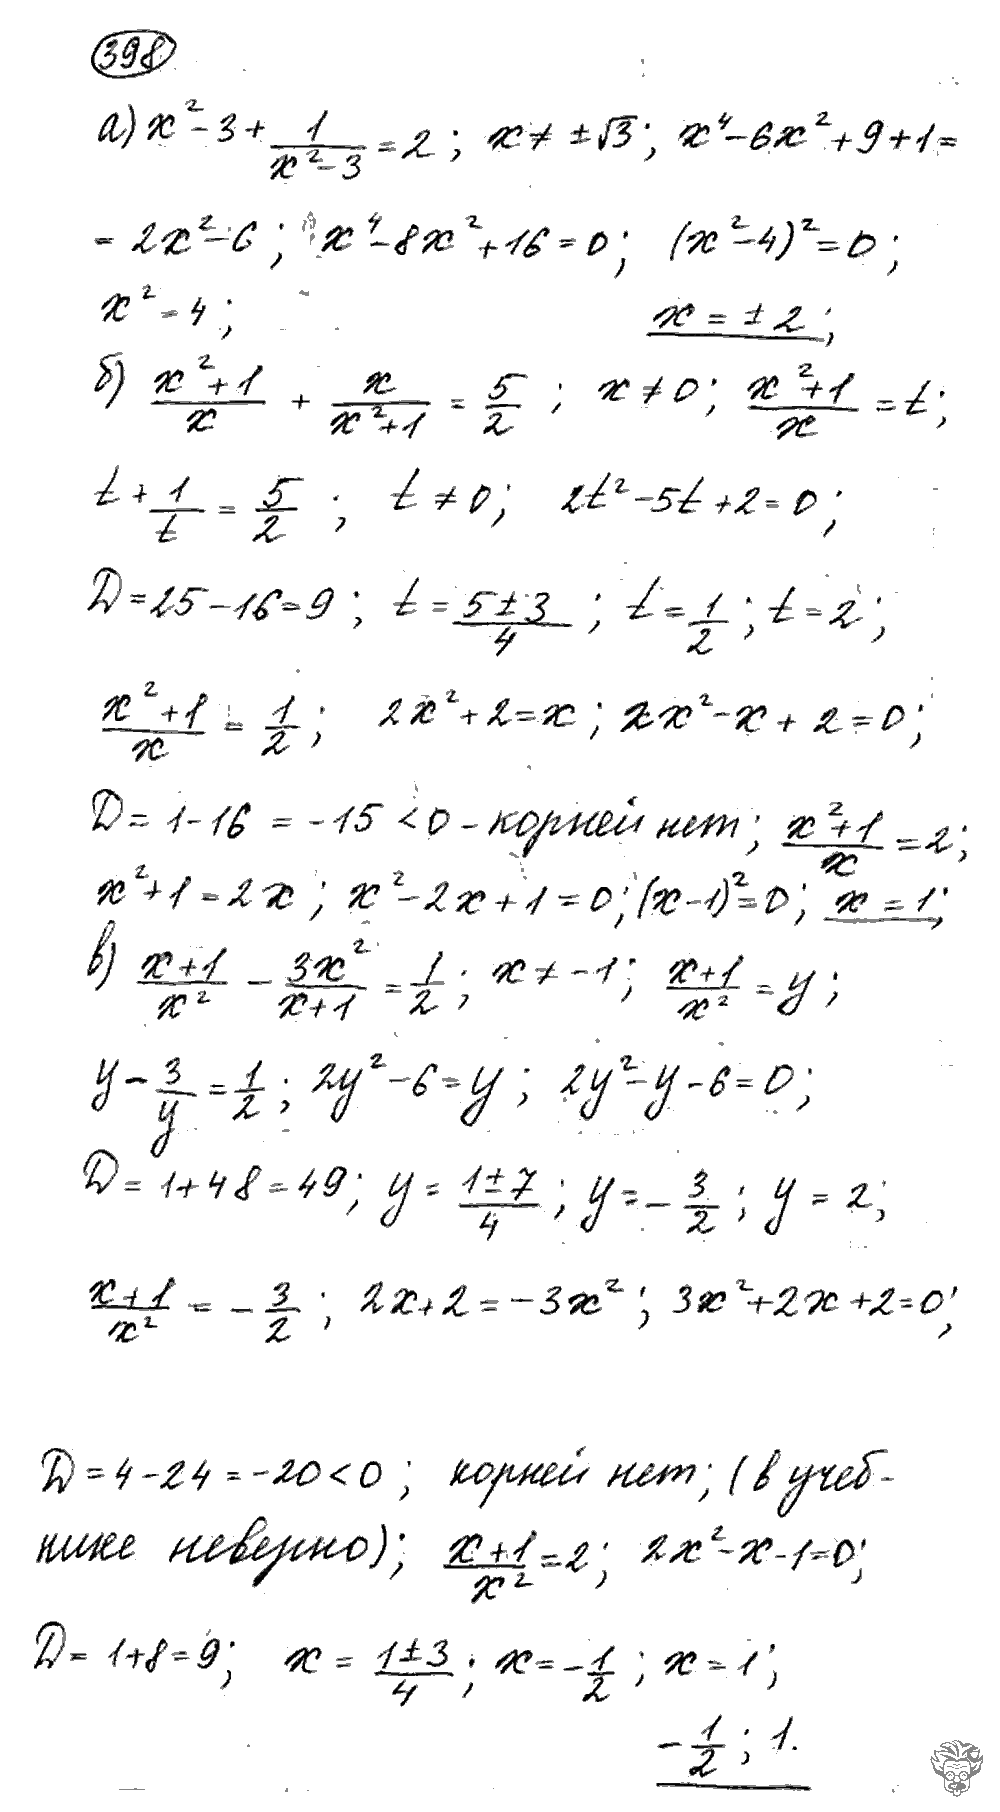 398
а) x² - 3 + 1/(x² - 3) = 2; x ≠ ±√3; x⁴ - 6x² + 9 + 1 =
= 2x² - 6; x⁴ - 8x² + 16 = 0; (x² - 4)² = 0;
x² = 4; x = ±2;
б) (x² + 1)/x + x/(x² + 1) = 5/2; x ≠ 0; (x² + 1)/x = t;
t + 1/t = 5/2; t ≠ 0; 2t² - 5t + 2 = 0;
D = 25 - 16 = 9; t = (5 ± 3)/4; t = 1/2; t = 2;
(x² + 1)/x = 1/2; 2x² + 2 = x; 2x² - x + 2 = 0;
D = 1 - 16 = -15 < 0 - корней нет; (x² + 1)/x = 2;
x² + 1 = 2x; x² - 2x + 1 = 0; (x - 1)² = 0; x = 1;
в) (x + 1)/x² - 3x²/(x + 1) = 1/2; x ≠ -1; (x + 1)/x² = y;
y - 3/y = 1/2; 2y² - 6 = y; 2y² - y - 6 = 0;
D = 1 + 48 = 49; y = (1 ± 7)/4; y = -3/2; y = 2;
(x + 1)/x² = -3/2; 2x + 2 = -3x²; 3x² + 2x + 2 = 0;
D = 4 - 24 = -20 < 0; корней нет; (в учеб-
нике неверно); (x + 1)/x² = 2; 2x² - x - 1 = 0;
D = 1 + 8 = 9; x = (1 ± 3)/4; x = -1/2; x = 1;
-1/2; 1.